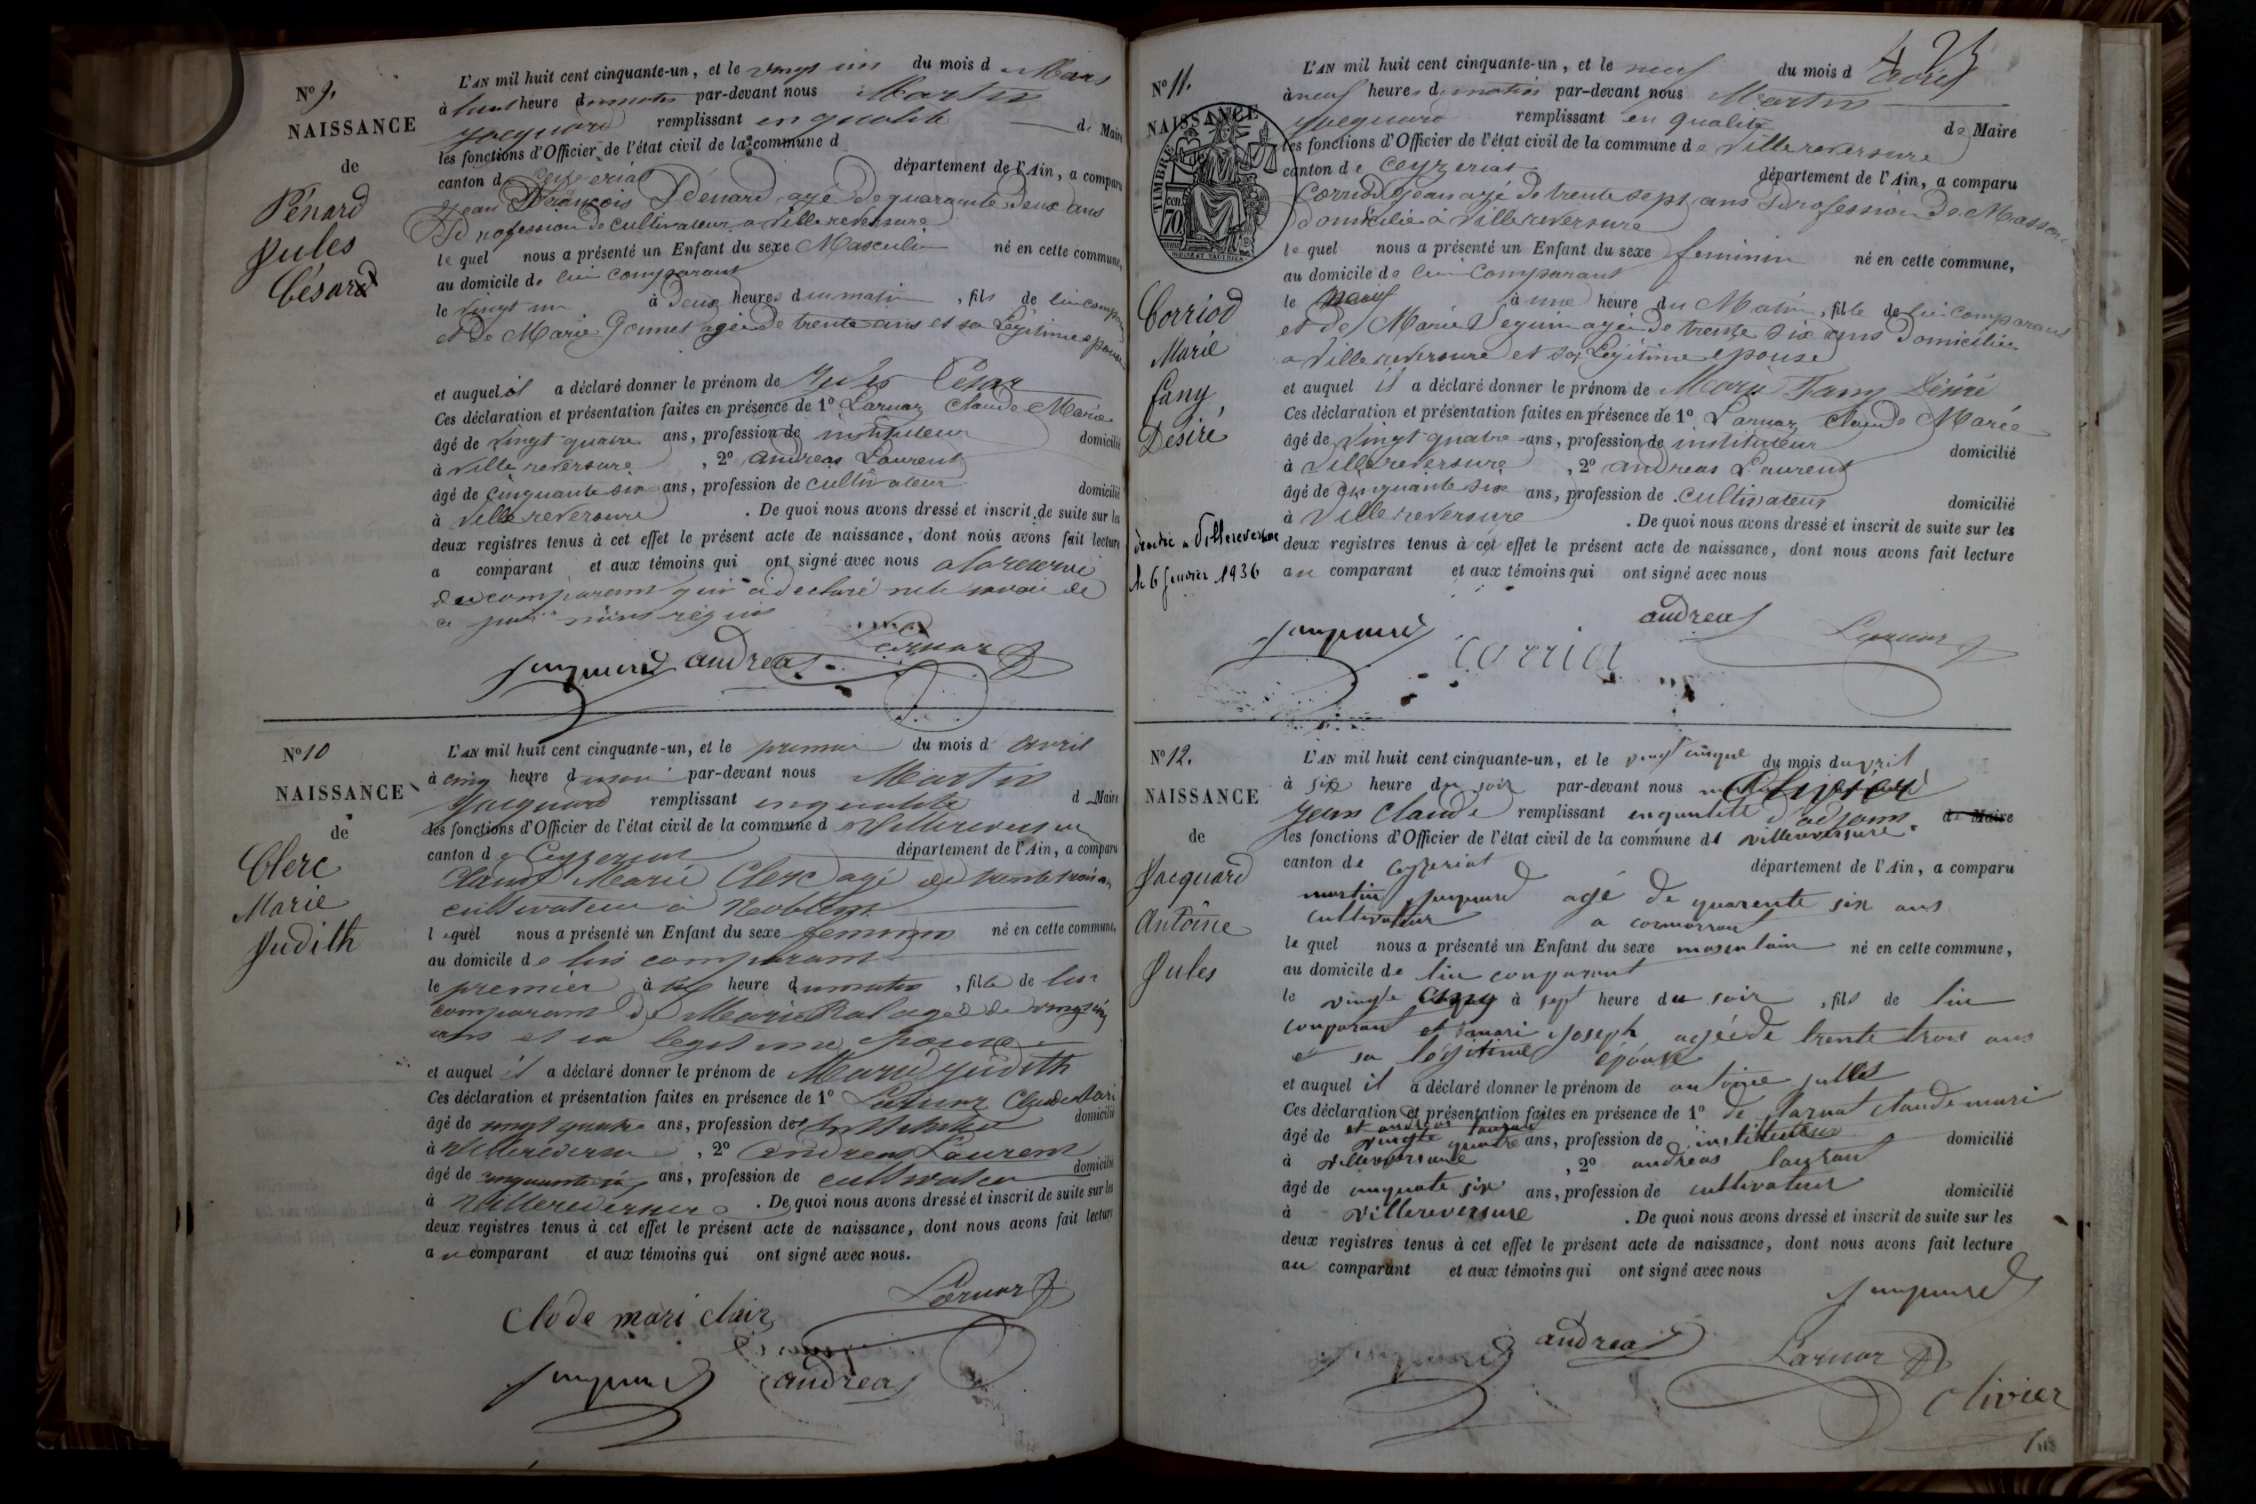 Nº 9.
NAISSANCE
de
Pénard
Jules
César
L'AN mil huit cent cinquante-un, et le vingt un du mois d Mars
à huit heure du matin par-devant nous Martin
Jacquard remplissant en qualité de Maire
les fonctions d'Officier de l'état civil de la commune d
canton de Ceyzériat département de l'Ain, a comparu
Jean François Pénard agé de quarante deux ans
Profession de cultivateur a Villereversure
le quel nous a présenté un Enfant du sexe Masculin né en cette commune,
au domicile de lui comparant
le vingt un à deux heures du matin, fils de lui compar
et de Marie Gounet agée de trente ans et sa Légitime epouse
et auquel il a déclaré donner le prénom de Jules César
Ces déclaration et présentation faites en présence de 1º Larnaz Claude Marie
âgé de vingt quatre ans, profession de instituteur domicilié
à Villereversure, 2º andreas Laurent
âgé de cinquante six ans, profession de cultivateur domicilié
à Villereversure. De quoi nous avons dressé et inscrit de suite sur les
deux registres tenus à cet effet le présent acte de naissance, dont nous avons fait lecture
a comparant et aux témoins qui ont signé avec nous a la reserve
du comparant qui a declaré ne le savoir de
ce requis
Jacquard andreas Larnaz
Nº 10
NAISSANCE
de
Clerc
Marie
Judith
L'AN mil huit cent cinquante-un, et le premier du mois d avril
à cinq heure du soir par-devant nous Martin
Jacquard remplissant en qualité d Maire
les fonctions d'Officier de l'état civil de la commune d Villereversure
canton de Ceyzeriat département de l'Ain, a comparu
Claude Marie Clerc agé de trente trois ans
cultivateur à Noblens
lequel nous a présenté un Enfant du sexe feminin né en cette commune,
au domicile de lui comparant
le premier à six heure du matin, fille de lui
comparant de Marie Ral agée de vingt cinq
ans et sa legitime epouse
et auquel il a déclaré donner le prénom de Marie Judith
Ces déclaration et présentation faites en présence de 1º Larnaz Claude Mari
âgé de vingt quatre ans, profession de instituteur domicilié
à Villereversure, 2º andreas Laurent
âgé de cinquante six ans, profession de cultivateur domicilié
à Villereversure. De quoi nous avons dressé et inscrit de suite sur les
deux registres tenus à cet effet le présent acte de naissance, dont nous avons fait lecture
au comparant et aux témoins qui ont signé avec nous.
Clode mari clair Larnaz
Jacquard andreas
423
Nº 11.
NAISSANCE
TIMBRE
70
Corriod
Marie
Fany
Désiré
décédée a Villereversure
le 6 février 1936
L'AN mil huit cent cinquante-un, et le neuf du mois d avril
à neuf heures du matin par-devant nous Martin
Jacquard remplissant en qualité de Maire
les fonctions d'Officier de l'état civil de la commune de Villereversure
canton de Ceyzeriat département de l'Ain, a comparu
Corriod Jean agé de trente sept ans Profession de Masson
domicilié à Villereversure
le quel nous a présenté un Enfant du sexe feminin né en cette commune,
au domicile de lui Comparant
le neuf à une heure du Matin, fille de lui comparant
et de Marie Seguin agée de trente six ans domiciliée
a Villereversure et sa Légitime epouse
et auquel il a déclaré donner le prénom de Marie Fany Désiré
Ces déclaration et présentation faites en présence de 1º Larnaz Claude Marie
âgé de vingt quatre ans, profession de instituteur domicilié
à Villereversure, 2º andreas Laurent
âgé de cinquante six ans, profession de cultivateur domicilié
à Villereversure. De quoi nous avons dressé et inscrit de suite sur les
deux registres tenus à cet effet le présent acte de naissance, dont nous avons fait lecture
au comparant et aux témoins qui ont signé avec nous
Jacquard corriod andreas Larnaz
Nº 12.
NAISSANCE
de
Jacquard
Antoine
Jules
L'AN mil huit cent cinquante-un, et le vingt cinque du mois d avril
à six heure du soir par-devant nous Olivier
Jean Claude remplissant en quantité d'adjoint de Maire
les fonctions d'Officier de l'état civil de la commune de villereversure
canton de ceyzeriat département de l'Ain, a comparu
martin jacquard agé de quarente six ans
cultivateur a cormorran
le quel nous a présenté un Enfant du sexe masculain né en cette commune,
au domicile de lui conparant
le vingte cinq à sept heure du soir, fils de lui
conparant et mari joseph agée de trente trois ans
et sa légitime épouse
et auquel il a déclaré donner le prénom de antoine julles
Ces déclaration et présentation faites en présence de 1º de larnat claude mari
et andreas laurant
âgé de vingte quatre ans, profession de instituteur domicilié
à villereversure, 2º andreas laurant
âgé de cinquate six ans, profession de cultivateur domicilié
à villereversure. De quoi nous avons dressé et inscrit de suite sur les
deux registres tenus à cet effet le présent acte de naissance, dont nous avons fait lecture
au comparant et aux témoins qui ont signé avec nous
Jacquard
andreas Larnaz
olivier